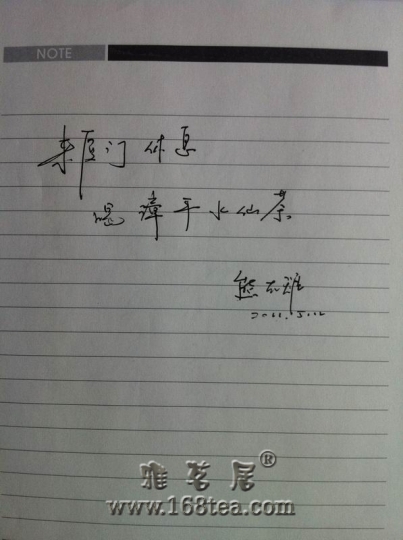 NOTE
来厦门休息
喝漳平水仙茶
熊
2011.5.12
雅茗居®
www.168tea.com